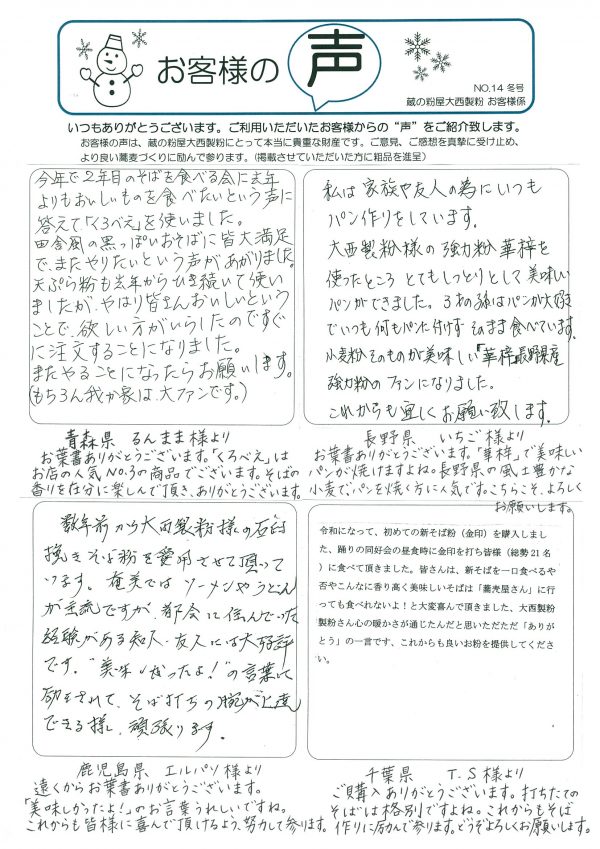 お客様の声
NO.14 冬号
蔵の粉屋大西製粉 お客様係
いつもありがとうございます。ご利用いただいたお客様からの“声”をご紹介致します。
お客様の声は、蔵の粉屋大西製粉にとって本当に貴重な財産です。ご意見、ご感想を真摯に受け止め、
より良い蕎麦づくりに励んで参ります。(掲載させていただいた方に粗品を進呈)
今年で2年目のそばを食べる会に去年
よりもおいしいものを食べたいという声に
答えて「くろべえ」を使いました。
田舎風の黒っぽいおそばに皆大満足
で、またやりたいという声があがりました。
天ぷら粉も去年からひき続いて使い
ましたが、やはり皆さんおいしいという
ことで、欲しい方がいらしたのですぐ
に注文することになりました。
またやることになったらお願いします。
(もちろん我が家は、大ファンです。)
青森県 るんまま様より
お葉書ありがとうございます。「くろべえ」は
お店の人気No.3の商品でございます。そばの
香りを存分に楽しんで頂き、ありがとうございます。
私は家族や友人の為にいつも
パン作りをしています。
大西製粉様の強力粉華梓を
使ったところ とてもしっとりとして美味しい
パンができました。3才の孫はパンが大好き
でいつも何もパンに付けず そのまま食べています。
小麦粉そのものが美味しい「華梓」長野県産
強力粉のファンになりました。
これからも宜しくお願い致します。
長野県 いちご様より
お葉書ありがとうございます。「華梓」で美味しい
パンが焼けますよね。長野県の風土豊かな
小麦で、パンを焼く方に人気です。こちらこそ、よろしく
お願いします。
数年前から大西製粉様の石臼
挽きそば粉を愛用させて頂いて
います。奄美ではソーメンやうどん
が主流ですが、都会に住んでいた
経験がある知人・友人には大好評
です。“美味しかったよ!”の言葉に
励まされて、そば打ちの腕が上達
できる様、頑張ります。
鹿児島県 エルパソ様より
遠くからお葉書ありがとうございます。
「美味しかったよ!」のお言葉うれしいですね。
これからも皆様に喜んで頂けるよう、努力して参ります。
令和になって、初めての新そば粉(金印)を購入しまし
た、踊りの同好会の昼食時に金印を打ち皆様(総勢21名
)に食べて頂きました。皆さんは、新そばを一口食べるや
否やこんなに香り高く美味しいそばは「蕎麦屋さん」に行
っても食べれないよ!と大変喜んで頂きました、大西製粉
製粉さん心の暖かさが通じたんだと思いただただ「ありが
とう」の一言です、これからも良いお粉を提供してくださ
い。
千葉県 T.S様より
ご購入ありがとうございます。打ちたての
そばは格別ですよね。これからもそば
作りに励んで参ります。どうぞよろしくお願いします。